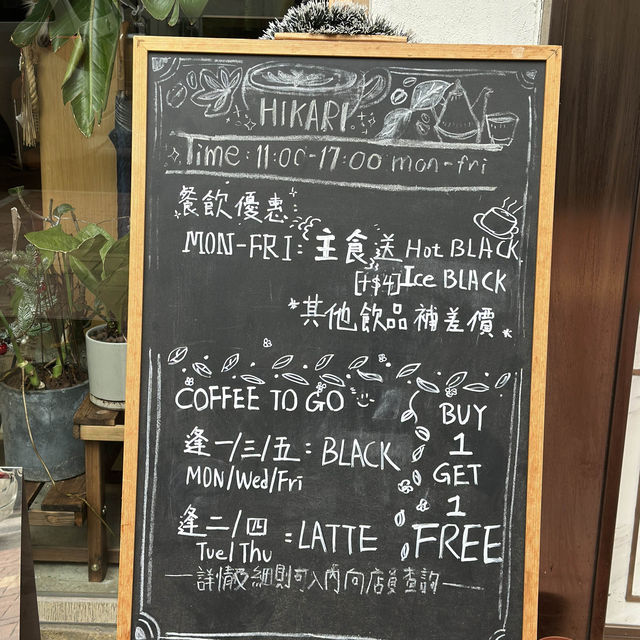 HIKARI
Time: 11:00-17:00 mon-fri
餐飲優惠
MON-FRI: 主食送 Hot BLACK
[+$4] Ice BLACK
*其他飲品補差價*
COFFEE TO GO
逢一/三/五: BLACK
MON/Wed/Fri
逢二/四 : LATTE
Tue/Thu
BUY
1
GET
1
FREE
—詳情及細則可入內向店員查詢—